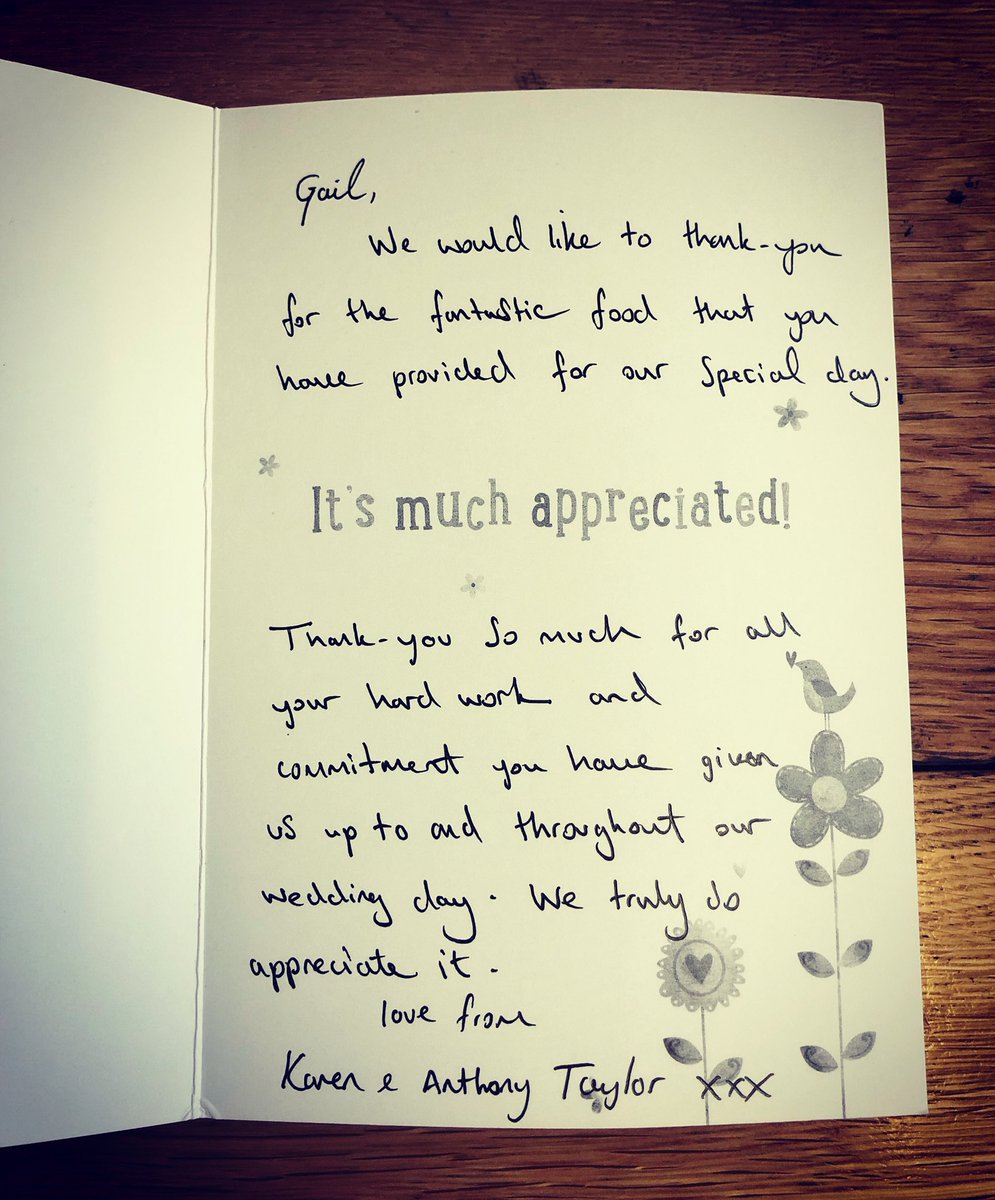 Gail,
We would like to thank-you
for the fantastic food that you
have provided for our Special day.
It's much appreciated!
Thank-you So much for all
your hard work and
commitment you have given
us up to and throughout our
wedding day. We truly do
appreciate it.
love from
Karen e Anthony Taylor xxx